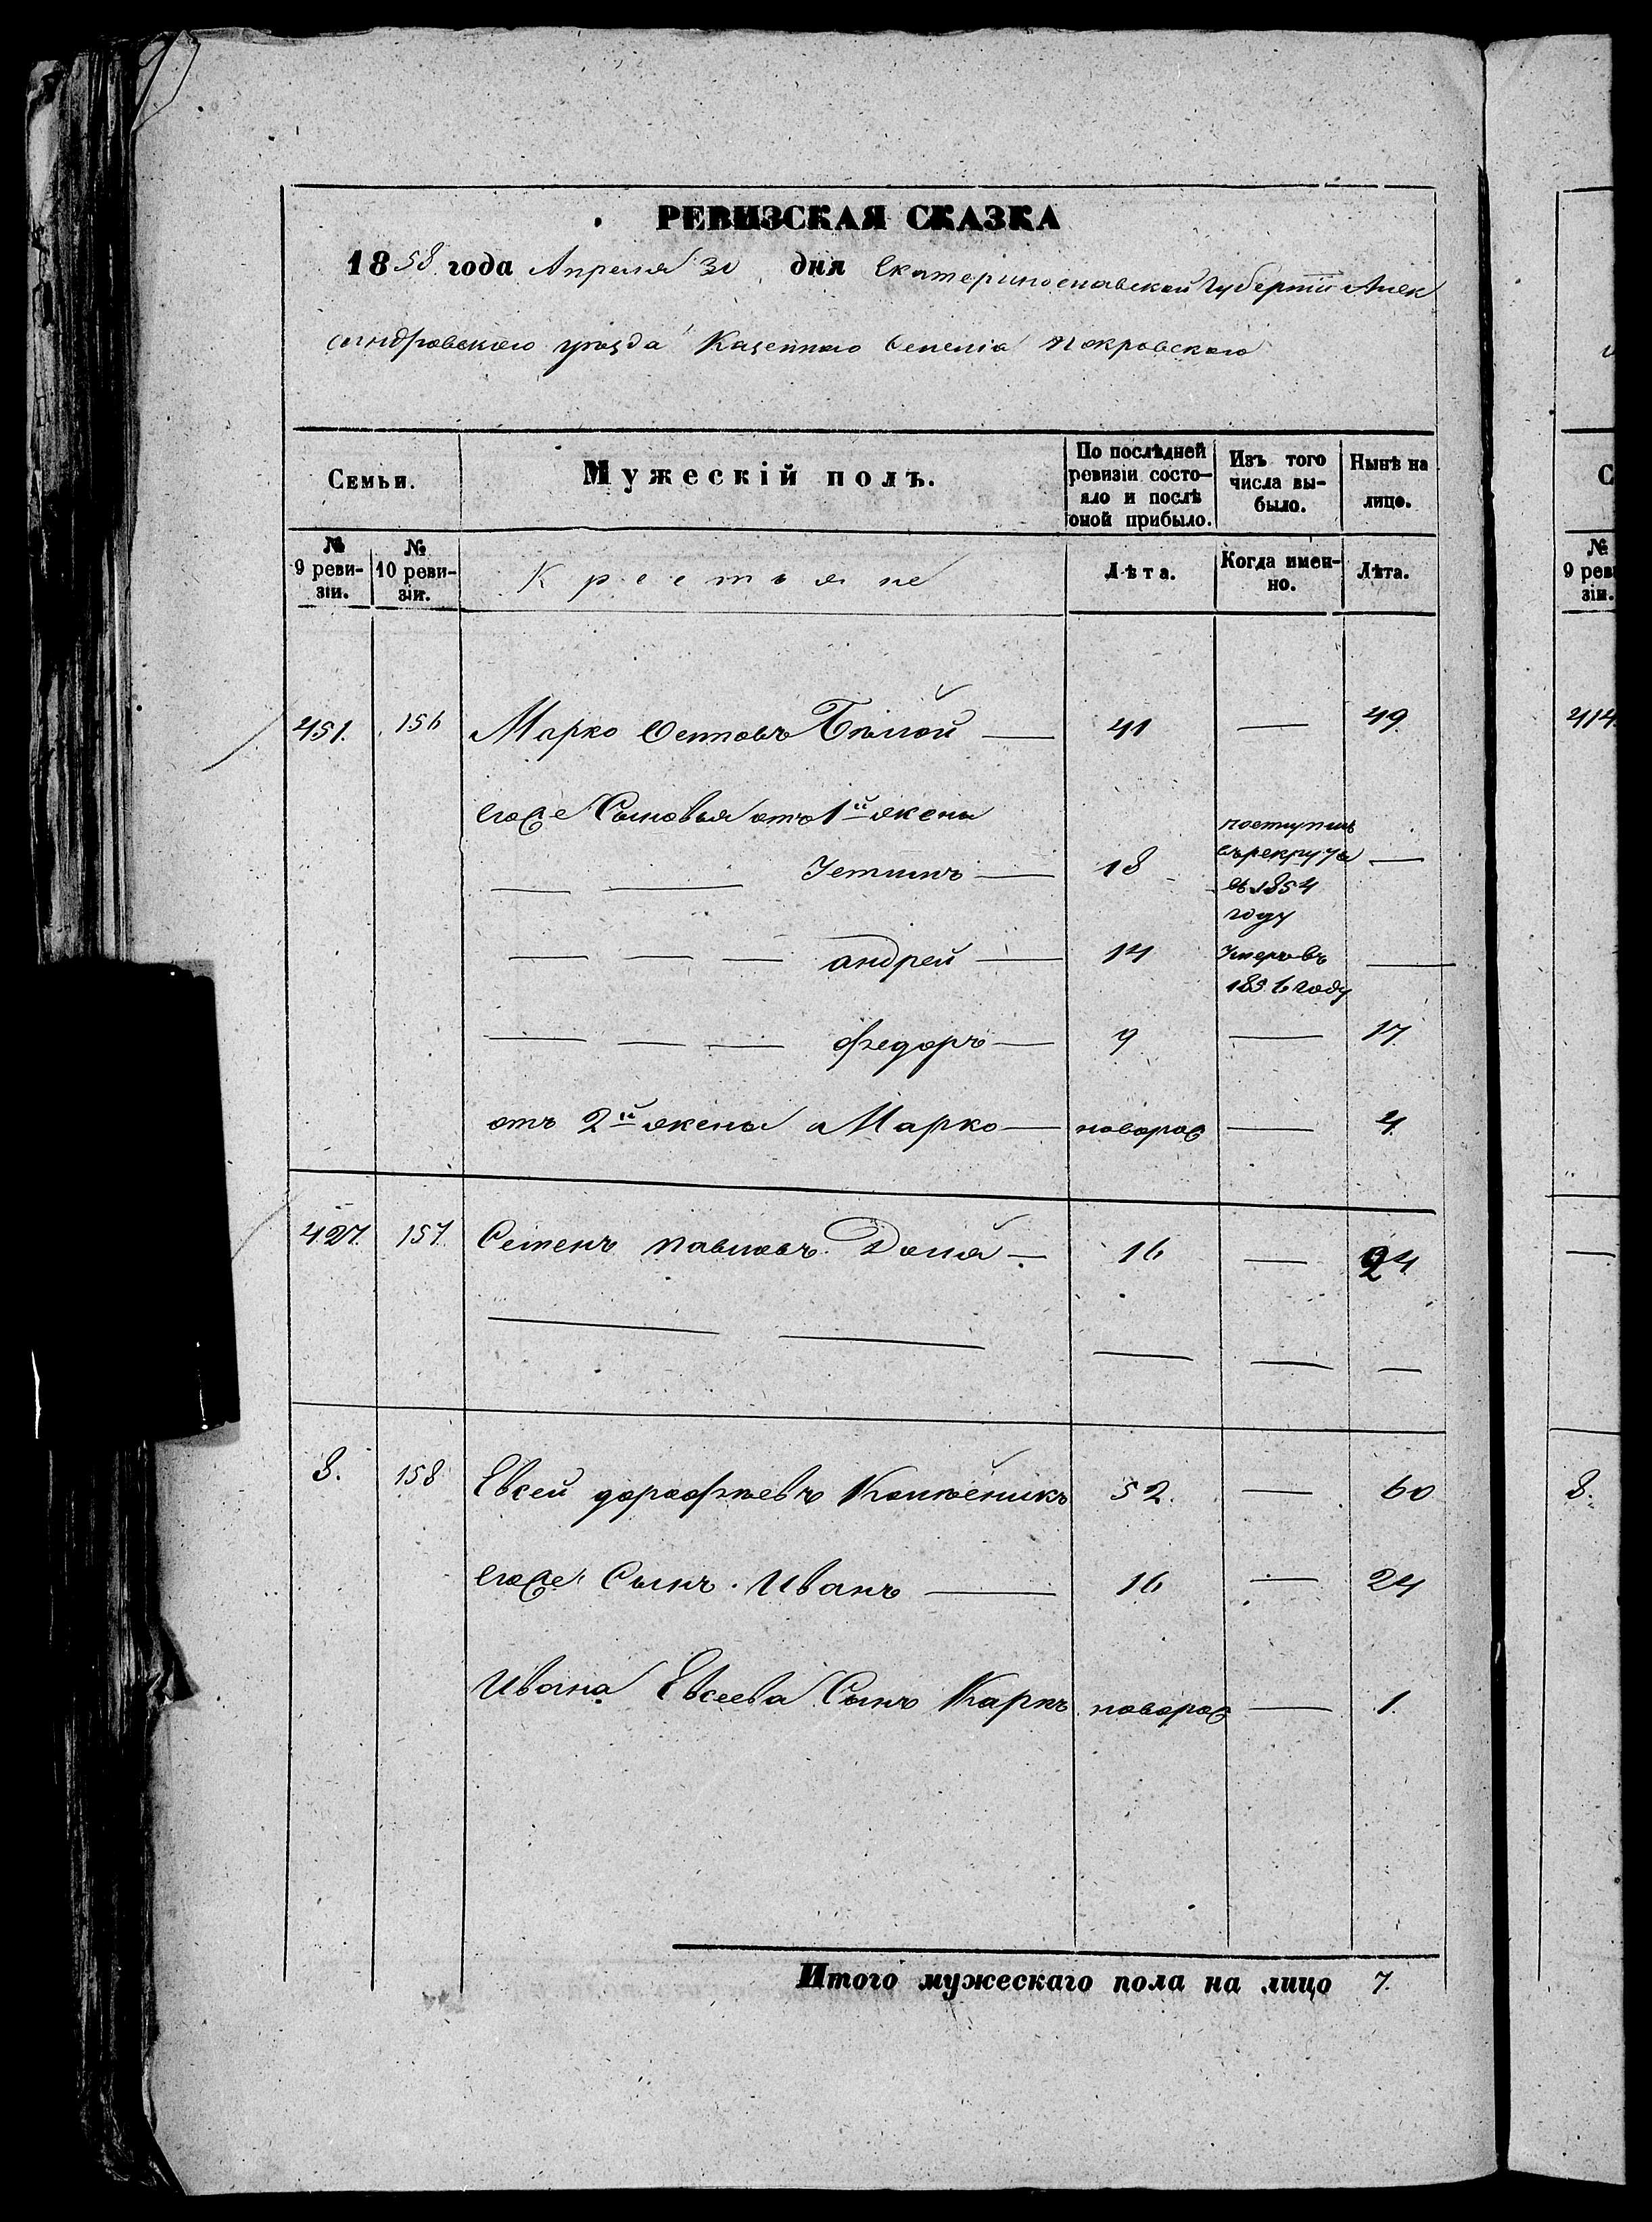 РЕВИЗСКАЯ СКАЗКА
1858 года Апреля 30 дня Екатеринославской Губерніи Алек
сандровского уѣзда Казенного Селенія Покровского
Семьи.
Мужескій полъ.
По послѣдней
ревизіи состо-
яло и послѣ
оной прибыло.
Изъ того
числа вы-
было.
Нынѣ на
лицо.
№
9 реви-
зіи.
№
10 реви-
зіи.
Крестьяне
Лѣта.
Когда имен-
но.
Лѣта.
№
9 реви
зіи.
451. 156 Марко Осиповъ Бѣлой — 41 — 49.
414.
его же Сыновья отъ 1й жены
— — Устинъ — 18 поступилъ
въ рекрута
въ 1854
году —
— — — андрей — 14 Умеръ въ
1856 году —
— — — Федоръ — 9 — 17.
отъ 2й жены Марко — новорож — 4.
427. 157. Семенъ павловъ Доля — 16 — 24.
— — — — —
8. 158 Евсей дорофѣевъ 52. — 60
8.
его же Сынъ Иванъ — 16 — 24
Ивана Евсеева Сынъ Карпъ новорож — 1.
Итого мужескаго пола на лицо 7.